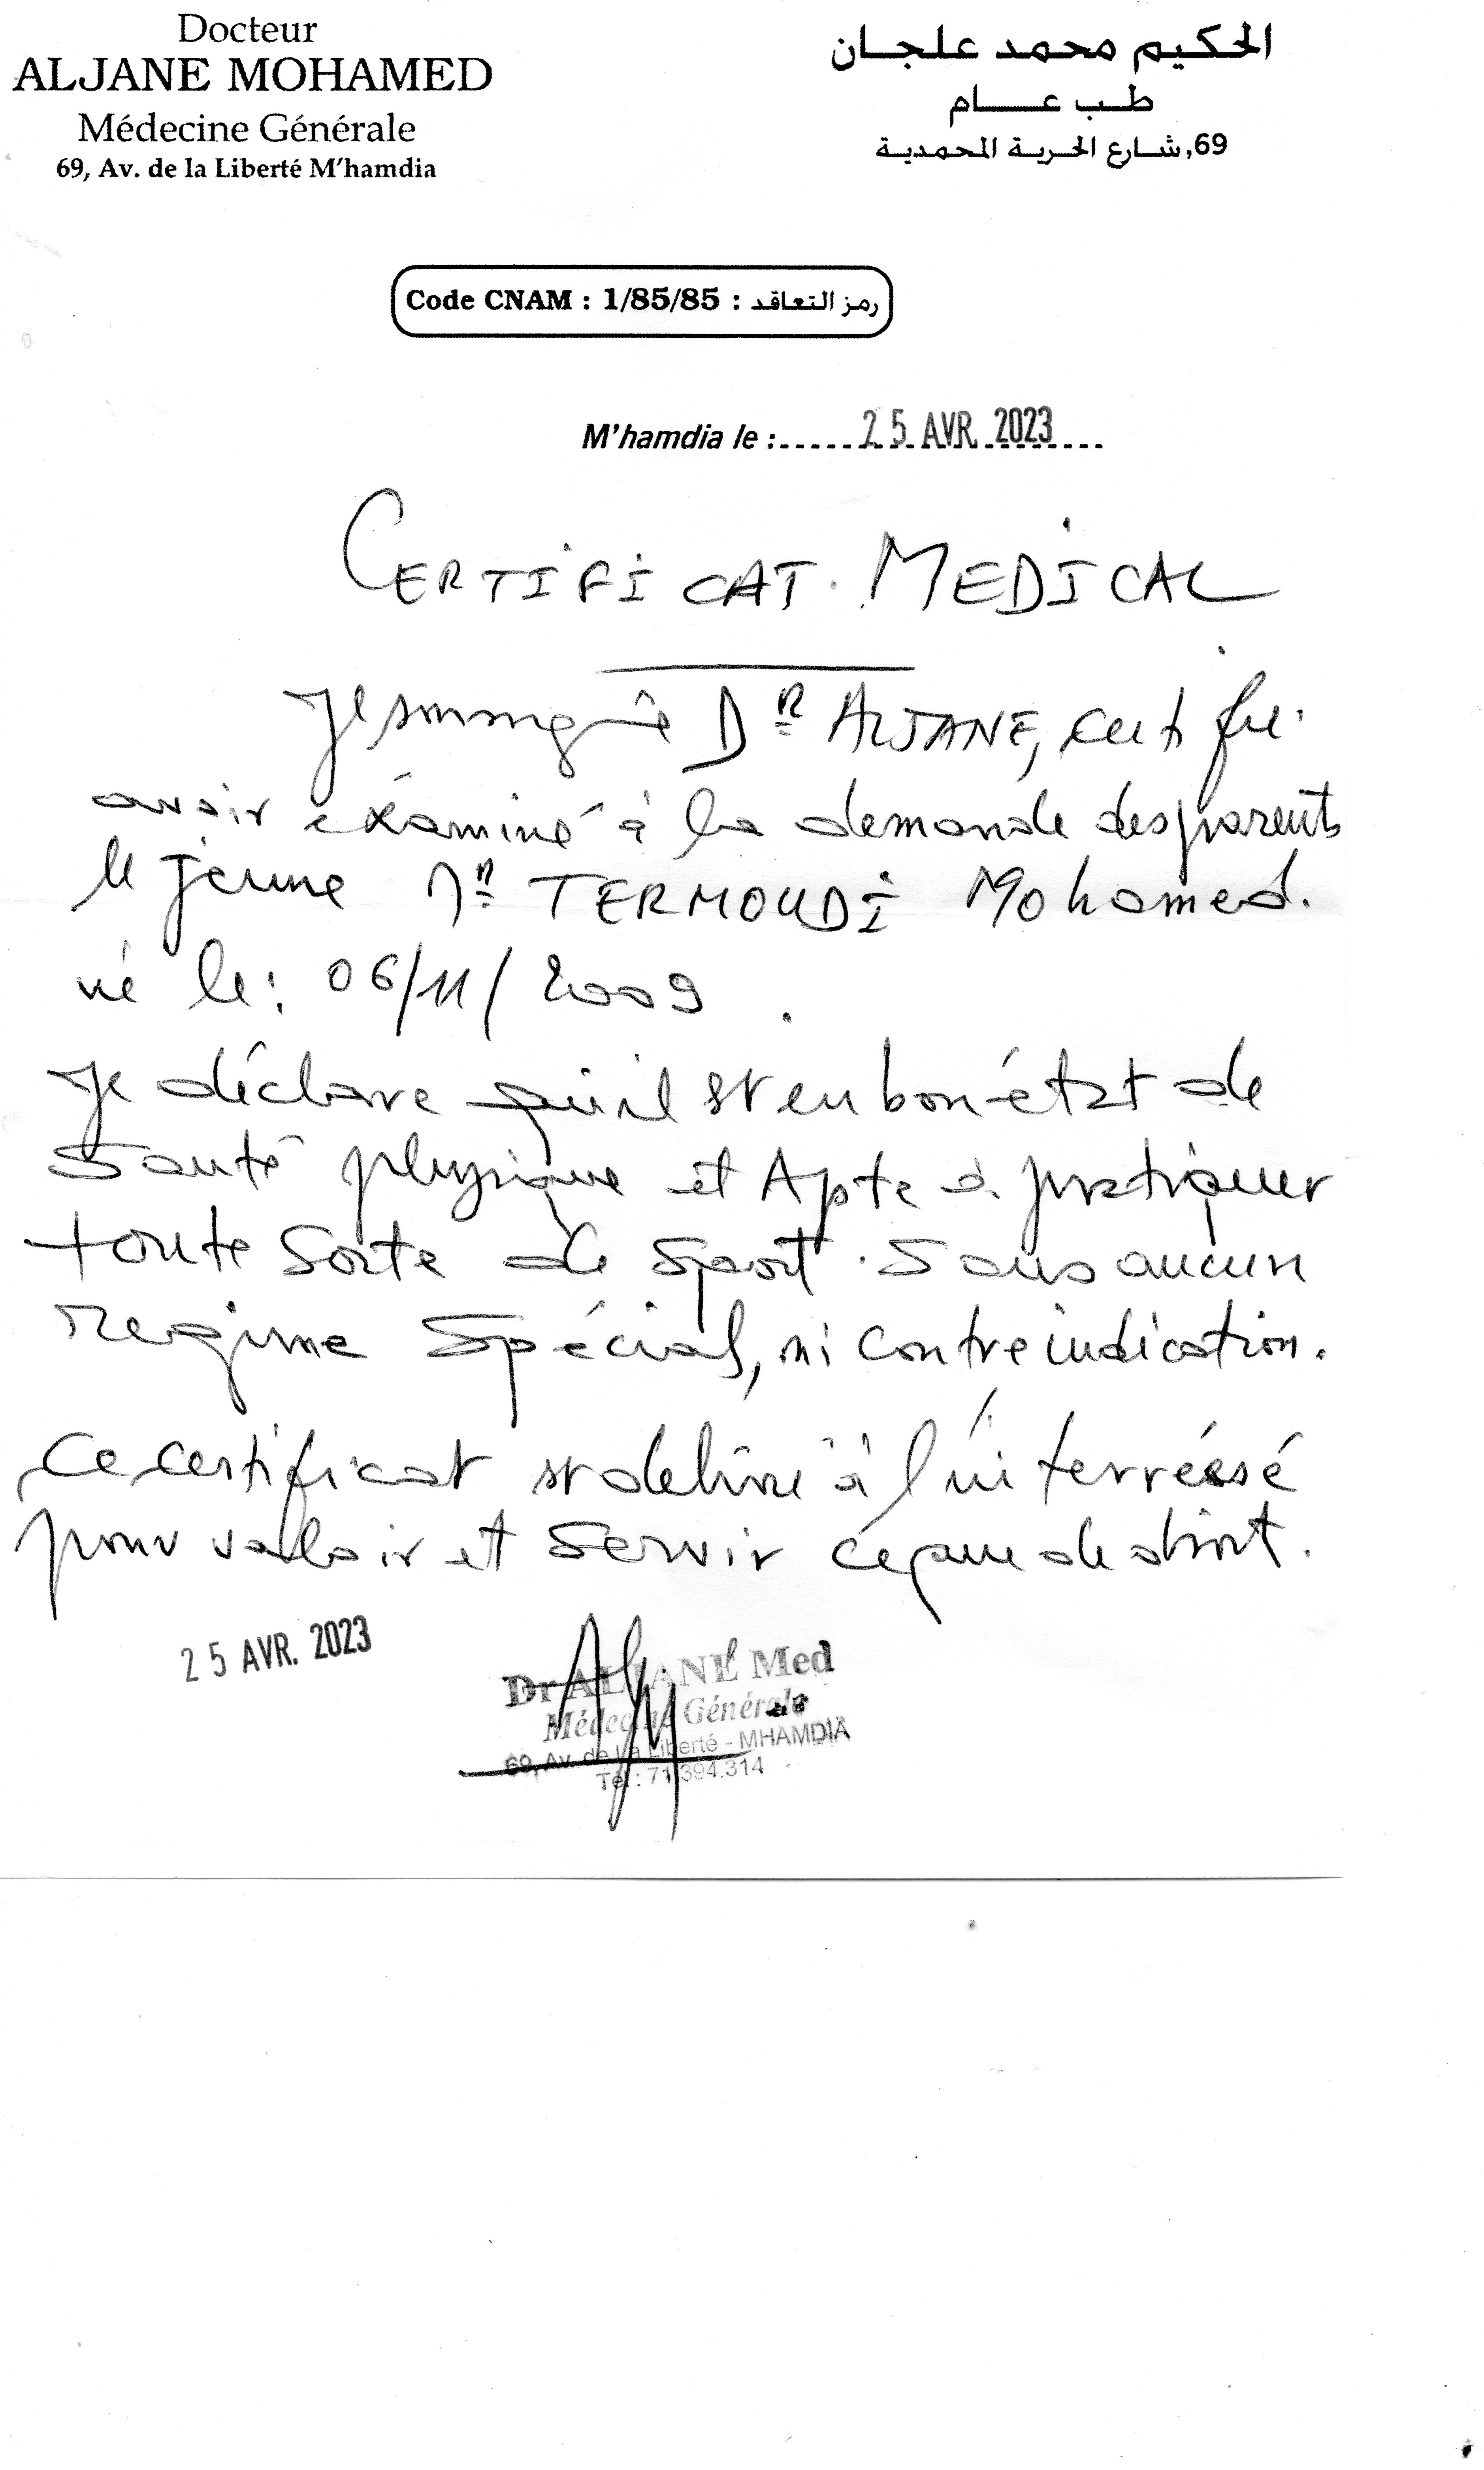 Docteur
ALJANE MOHAMED
Médecine Générale
69, Av. de la Liberté M'hamdia
الحكيم محمد علجان
طب عام
69, شارع الحرية المحمدية
Code CNAM : 1/85/85 : رمز التعاقد
M'hamdia le : 25 AVR. 2023
CERTIFICAT MEDICAL
Je soussigné Dr ALJANE, certifie
avoir éxaminé à la demande des parents
le jeune Mr TERMOUDI Mohamed.
né le : 06/11/2009.
Je déclare qu'il est en bon état de
Santé physique et Apte à pratiquer
toute Sorte de Sport. Sans aucun
Regime Spécial, ni contreindication.
Ce certificat est delivré à l'interréssé
pour valloir et Servir ce que de droit.
25 AVR. 2023
Dr ALJANE Med
Médecine Générale
69, Av. de La Liberté - MHAMDIA
Tél : 71 394.314